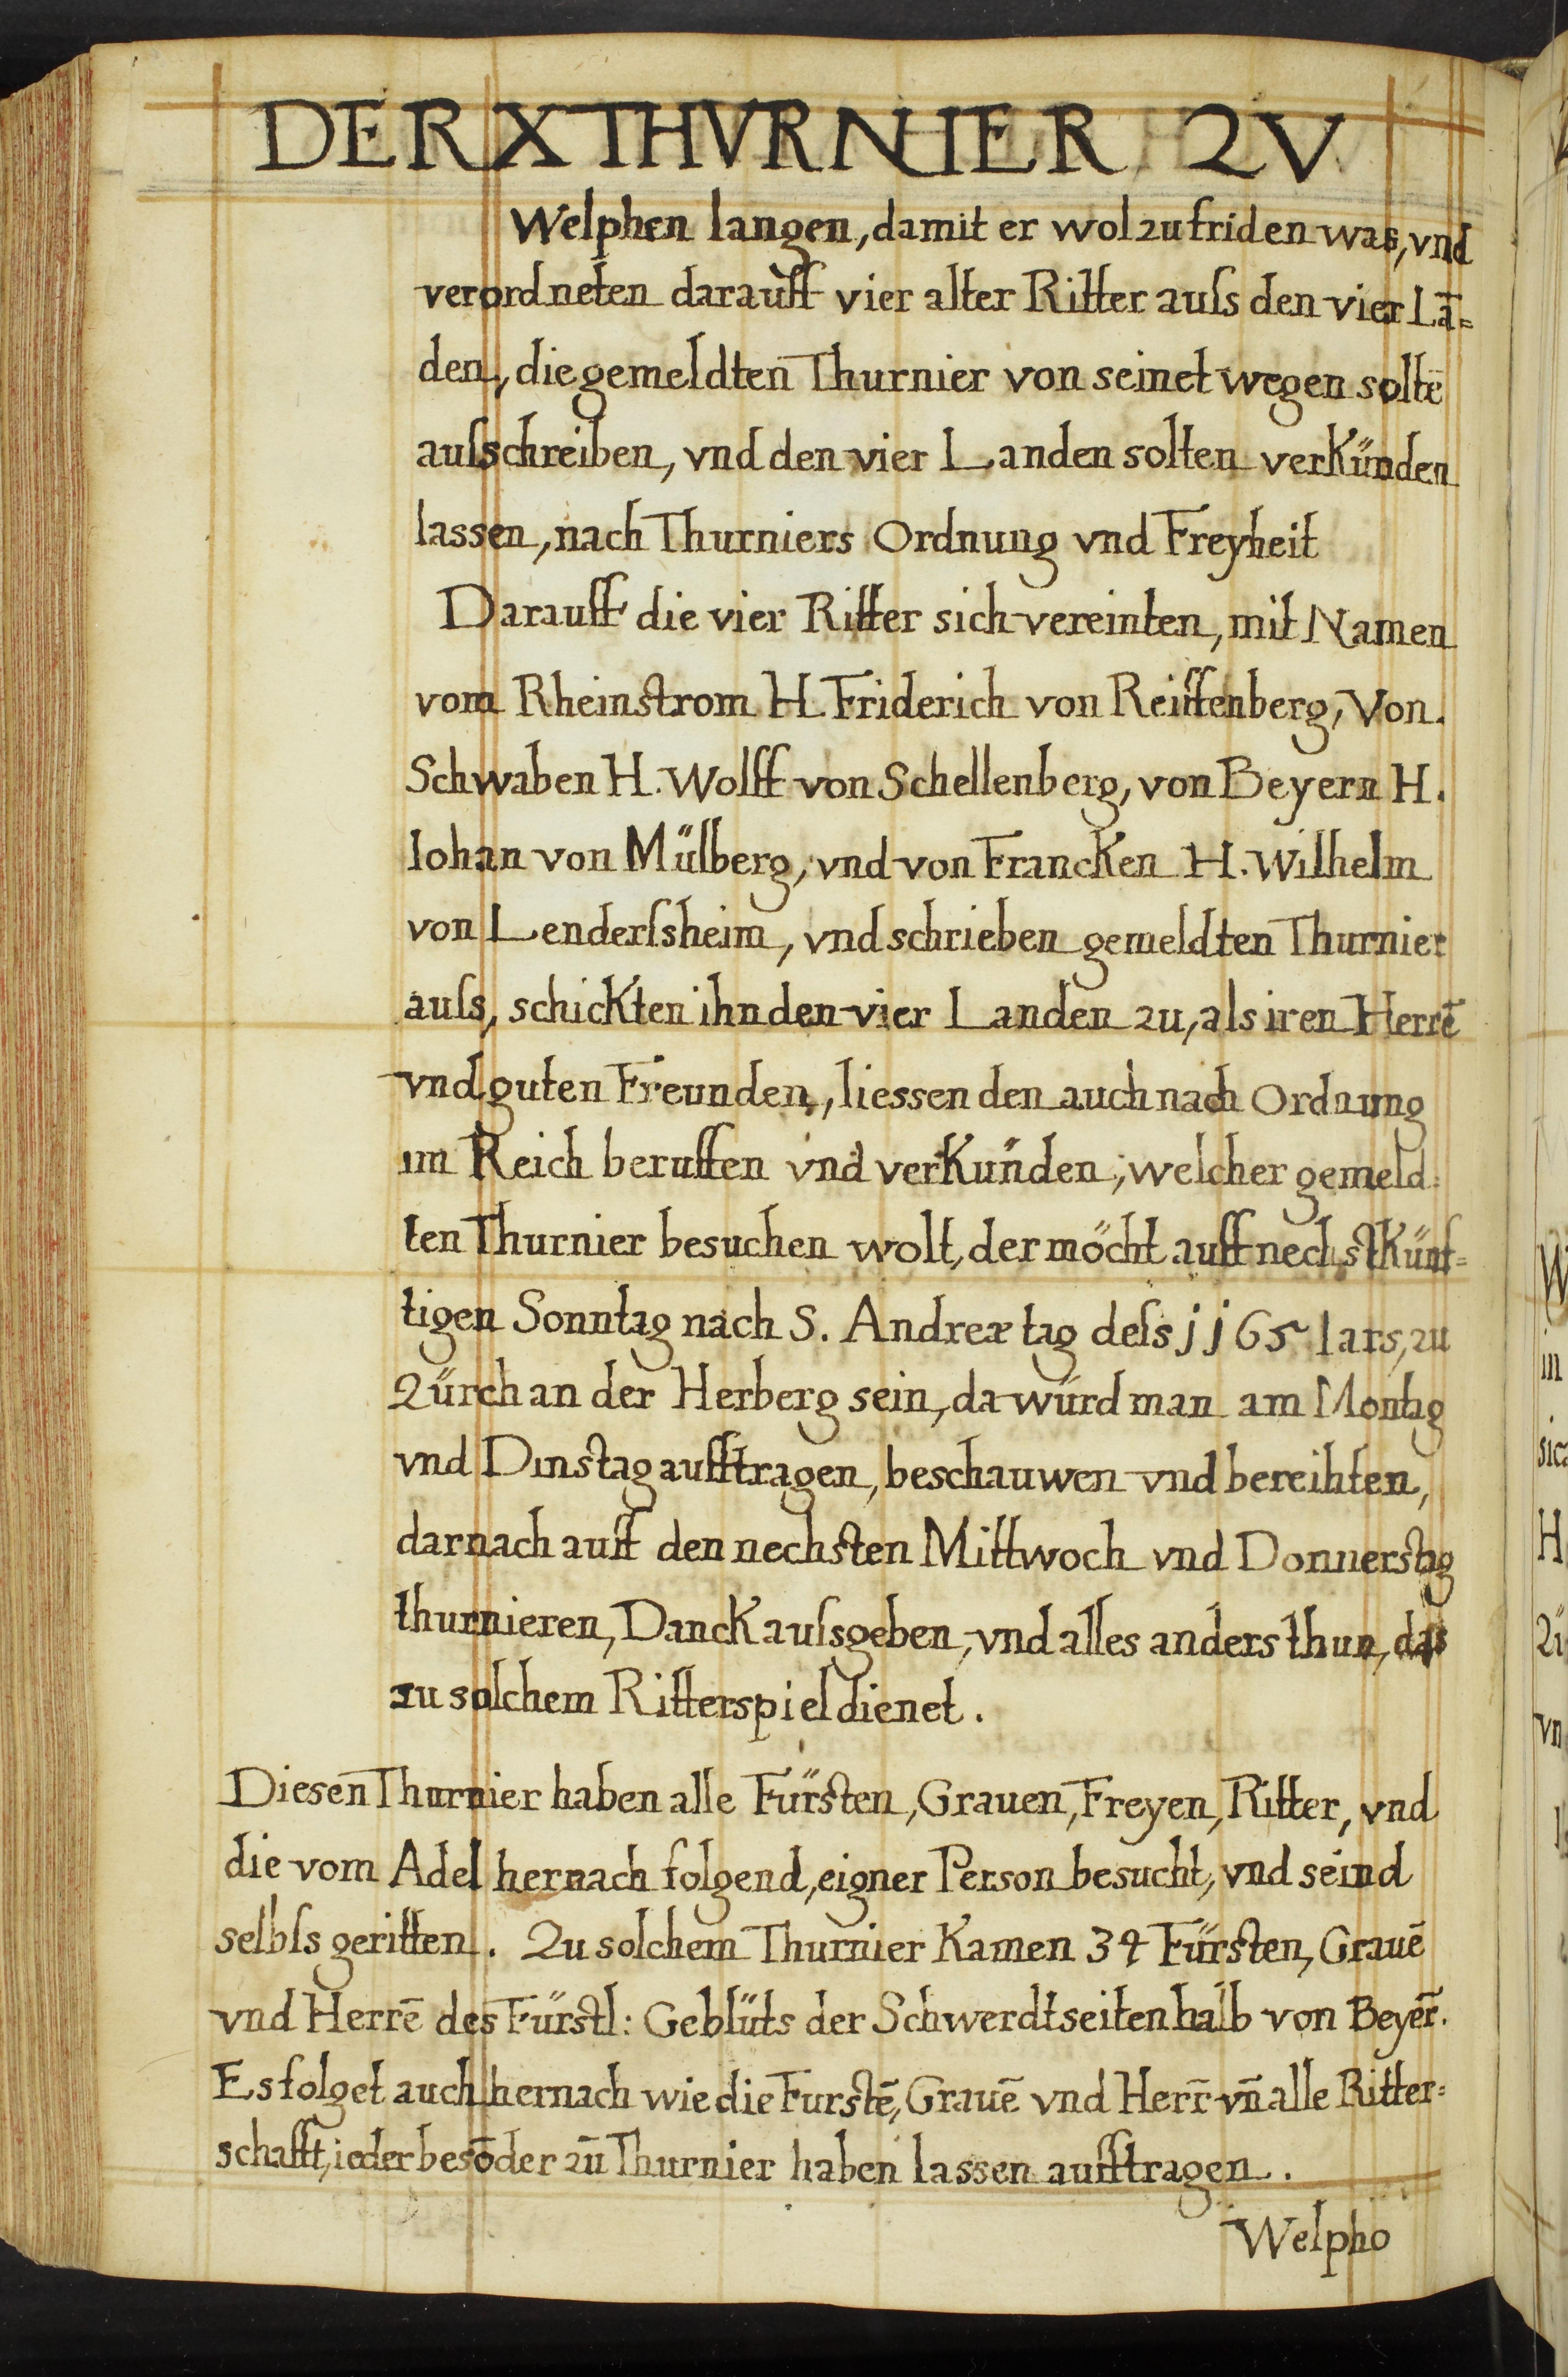 DER X THVRNIER ZV
Welphen langen, damit er wol zu friden was, vnd
verordneten darauff vier alter Ritter auſs den vier Lā=
den, die gemeldten Thurnier von seinet wegen soltē
auſsschreiben, vnd den vier Landen solten verkünden
lassen, nach Thurniers Ordnung vnd Freyheit
Darauff die vier Ritter sich vereinten, mit Namen
vom Rheinstrom H. Friderich von Reiffenberg, Von
Schwaben H. Wolff von Schellenberg, von Beyern H.
Iohan von Mülberg, vnd von Francken H. Wilhelm
von Lenderſsheim, vnd schrieben gemeldten Thurnier
auſs, schickten ihn den vier Landen zu, als iren Herrē
vnd guten Freunden, liessen den auch nach Ordnung
im Reich beruffen vnd verkünden, welcher gemeld=
ten Thurnier besuchen wolt, der möcht auff nechst künf=
tigen Sonntag nach S. Andreæ tag deſs jj65 Iars, zu
Zürch an der Herberg sein, da würd man am Montag
vnd Dinstag aufftragen, beschauwen vnd bereihten,
darnach auff den nechsten Mittwoch vnd Donnerstag
thurnieren, Danck auſsgeben, vnd alles anders thun, das
zu solchem Ritterspiel dienet.
Diesen Thurnier haben alle Fürsten, Grauen, Freyen, Ritter, vnd
die vom Adel hernach folgend, eigner Person besucht, vnd seind
selbſs geritten. Zu solchem Thurnier kamen 34 Fürsten, Grauē
vnd Herrē des Fürstl: Geblüts der Schwerdtseitenhalb von Beyer̄.
Es folget auch hernach wie die Furstē, Grauē vnd Herr̄ vn̄ alle Ritter=
schafft, ieder besōder zū Thurnier haben lassen aufftragen.
Welpho
W
in
sic
H
Zü
vn